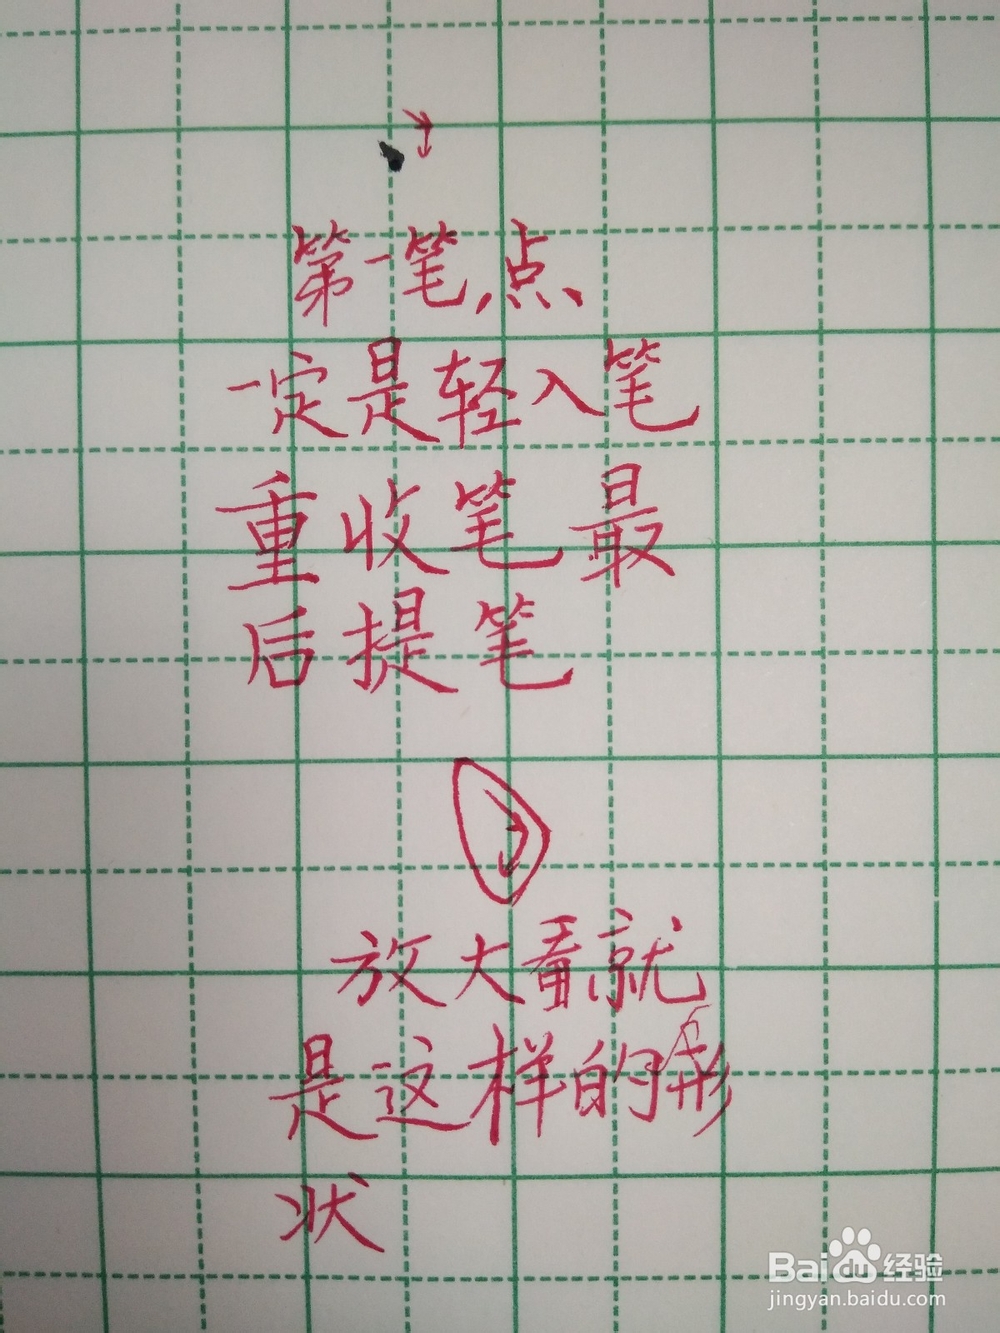 第一笔,点
一定是轻入笔
重收笔最
后提笔
放大看就
是这样的形
状
Baidu经验
jingyan.baidu.com